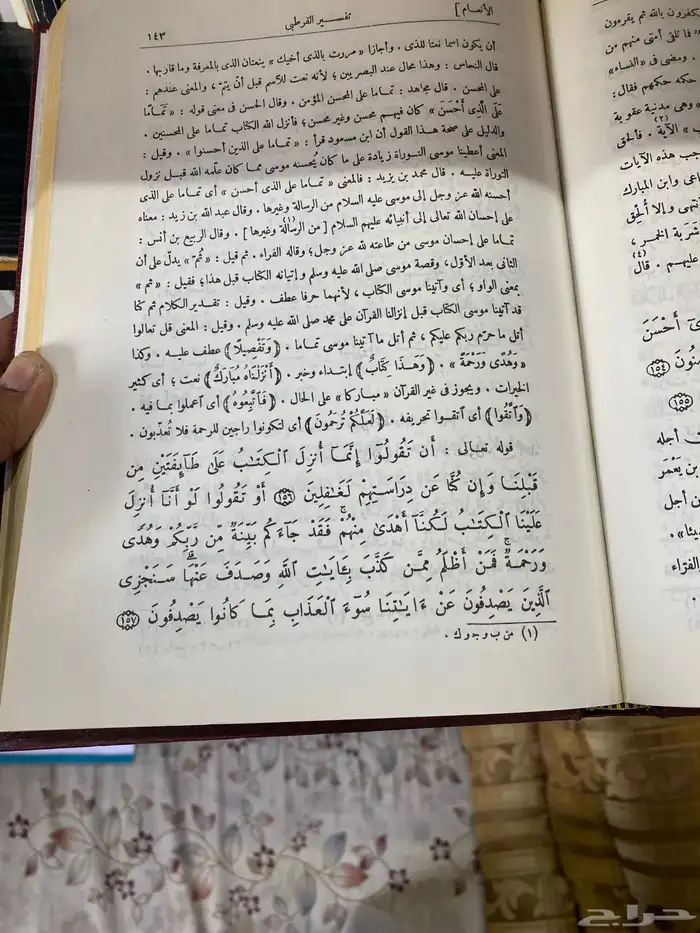 الأنعام ]
تفسير القرطبى
١٤٣
أن يكون اسما نعتا للذى . وأجازا « مررت بالذى أخيك » ينعتان الذى بالمعرفة وما قاربها .
قال النحاس : وهذا محال عند البصريين ؛ لأنه نعت للاسم قبل أن يتم ، والمعنى عندهم :
على المحسن . قال مجاهد : تماما على المحسن المؤمن . وقال الحسن فى معنى قوله : « تَمَامًا
عَلَى الَّذِى أَحْسَنَ » كان فيهم محسن وغير محسن ؛ فأنزل الله الكتاب تماما على المحسنين .
والدليل على صحة هذا القول أن ابن مسعود قرأ : « تماما على الذين أحسنوا » . وقيل :
المعنى أعطينا موسى التوراة زيادة على ما كان يُحسنه موسى مما كان علّمه الله قبل نزول
التوراة عليه . قال محمد بن يزيد : فالمعنى « تماما على الذى أحسن » أى تماما على الذى
أحسنه الله عز وجل إلى موسى عليه السلام من الرسالة وغيرها . وقال عبد الله بن زيد : معناه
على إحسان الله تعالى إلى أنبيائه عليهم السلام [ من الرسالة وغيرها ](١) . وقال الربيع بن أنس :
تماما على إحسان موسى من طاعته لله عز وجل ؛ وقاله الفراء . ثم قيل : « ثُمّ » يدلّ على أن
الثانى بعد الأوّل ، وقصة موسى صلى الله عليه وسلم وإتيانه الكتاب قبل هذا ؛ فقيل : « ثم »
بمعنى الواو ؛ أى وآتينا موسى الكتاب ، لأنهما حرفا عطف . وقيل : تقدير الكلام ثم كنا
قد آتينا موسى الكتاب قبل إنزالنا القرآن على محمد صلى الله عليه وسلم . وقيل : المعنى قل تعالوا
أتل ما حرّم ربكم عليكم ، ثم أتل ما آتينا موسى تماما . ﴿ وَتَفْصِيلًا ﴾ عطف عليه . وكذا
« وَهُدًى وَرَحْمَةً » . ﴿ وَهَذَا كِتَابٌ ﴾ ابتداء وخبر . ﴿ أَنْزَلْنَاهُ مُبَارَكٌ ﴾ نعت ؛ أى كثير
الخيرات . ويجوز فى غير القرآن « مباركا » على الحال . ﴿ فَاتَّبِعُوهُ ﴾ أى اعملوا بما فيه .
﴿ وَاتَّقُوا ﴾ أى اتقوا تحريفه . ﴿ لَعَلَّكُمْ تُرْحَمُونَ ﴾ أى لتكونوا راجين للرحمة فلا تُعذّبون .
قوله تعالى : أَن تَقُولُوٓا إِنَّمَآ أُنزِلَ ٱلْكِتَٰبُ عَلَىٰ طَآئِفَتَيْنِ مِن
قَبْلِنَا وَإِن كُنَّا عَن دِرَاسَتِهِمْ لَغَٰفِلِينَ ﴿١٥٦﴾ أَوْ تَقُولُوا لَوْ أَنَّآ أُنزِلَ
عَلَيْنَا ٱلْكِتَٰبُ لَكُنَّآ أَهْدَىٰ مِنْهُمْ ۚ فَقَدْ جَآءَكُم بَيِّنَةٌ مِّن رَّبِّكُمْ وَهُدًى
وَرَحْمَةٌ ۚ فَمَنْ أَظْلَمُ مِمَّن كَذَّبَ بِـَٔايَٰتِ ٱللَّهِ وَصَدَفَ عَنْهَا ۗ سَنَجْزِى
ٱلَّذِينَ يَصْدِفُونَ عَنْ ءَايَٰتِنَا سُوٓءَ ٱلْعَذَابِ بِمَا كَانُوا يَصْدِفُونَ ﴿١٥٧﴾
(١) من ب و جـ و ك .
يكفرون بالله ثم يقرءون
فا تلقى أمتى منهم من
. ومضى فى « النساء »
حكه حكمهم فقال :
وهى مدنية عقوبة
» الآية . فألحق(٢)
جب هذه الآيات
اعى وابن المبارك
نتهى وإلا ألحق
شَرَبة الخمر ،
عليهم . قال(٤)
أَحْسَنَ
﴿١٥٤﴾
﴿١٥٥﴾
أجله
بن يَعْمَر
ن أجل
الفرّاء
حراج